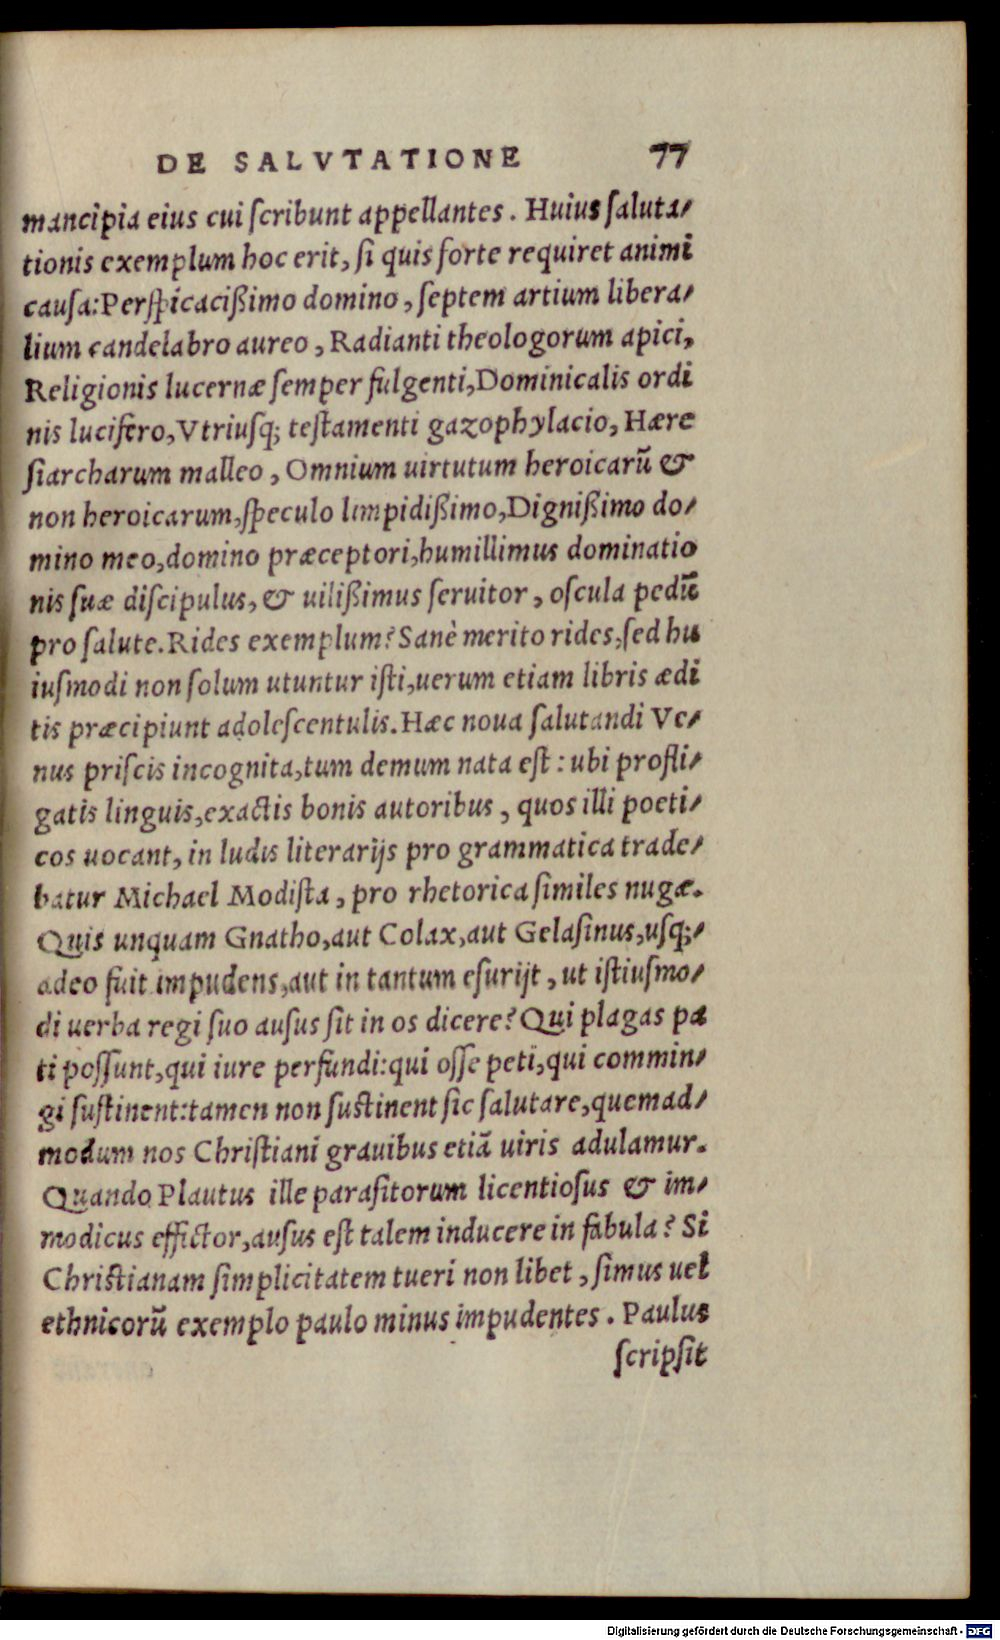 DE SALVTATIONE 77
mancipia eius cui ſcribunt appellantes. Huius ſaluta⸗
tionis exemplum hoc erit, ſi quis forte requiret animi
cauſa: Perſpicacißimo domino, ſeptem artium libera⸗
lium candelabro aureo, Radianti theologorum apici,
Religionis lucernæ ſemper fulgenti, Dominicalis ordi
nis lucifero, Vtriuſq; teſtamenti gazophylacio, Hære
ſiarcharum malleo, Omnium uirtutum heroicarū &
non heroicarum, ſpeculo limpidißimo, Dignißimo do⸗
mino meo, domino præceptori, humillimus dominatio
nis ſuæ diſcipulus, & uilißimus ſeruitor, oſcula pedū
pro ſalute. Rides exemplum? Sanè merito rides, ſed hu
iuſmodi non ſolum utuntur iſti, uerum etiam libris ædi
tis præcipiunt adoleſcentulis. Hæc noua ſalutandi Ve⸗
nus priſcis incognita, tum demum nata eſt: ubi profli⸗
gatis linguis, exactis bonis autoribus, quos illi poeti⸗
cos uocant, in ludis literarijs pro grammatica trade⸗
batur Michael Modiſta, pro rhetorica ſimiles nugæ.
Quis unquam Gnatho, aut Colax, aut Gelaſinus, uſq;⸗
adeo fuit impudens, aut in tantum eſurijt, ut iſtiuſmo⸗
di uerba regi ſuo auſus ſit in os dicere? Qui plagas pa
ti poſſunt, qui iure perfundi: qui oſſe peti, qui commin⸗
gi ſuſtinent: tamen non ſuſtinent ſic ſalutare, quemad⸗
modum nos Chriſtiani grauibus etiā uiris adulamur.
Quando Plautus ille paraſitorum licentioſus & im⸗
modicus effictor, auſus eſt talem inducere in fabula? Si
Chriſtianam ſimplicitatem tueri non libet, ſimus uel
ethnicorū exemplo paulo minus impudentes. Paulus
ſcripſit
Digitalisierung gefördert durch die Deutsche Forschungsgemeinschaft - DFG